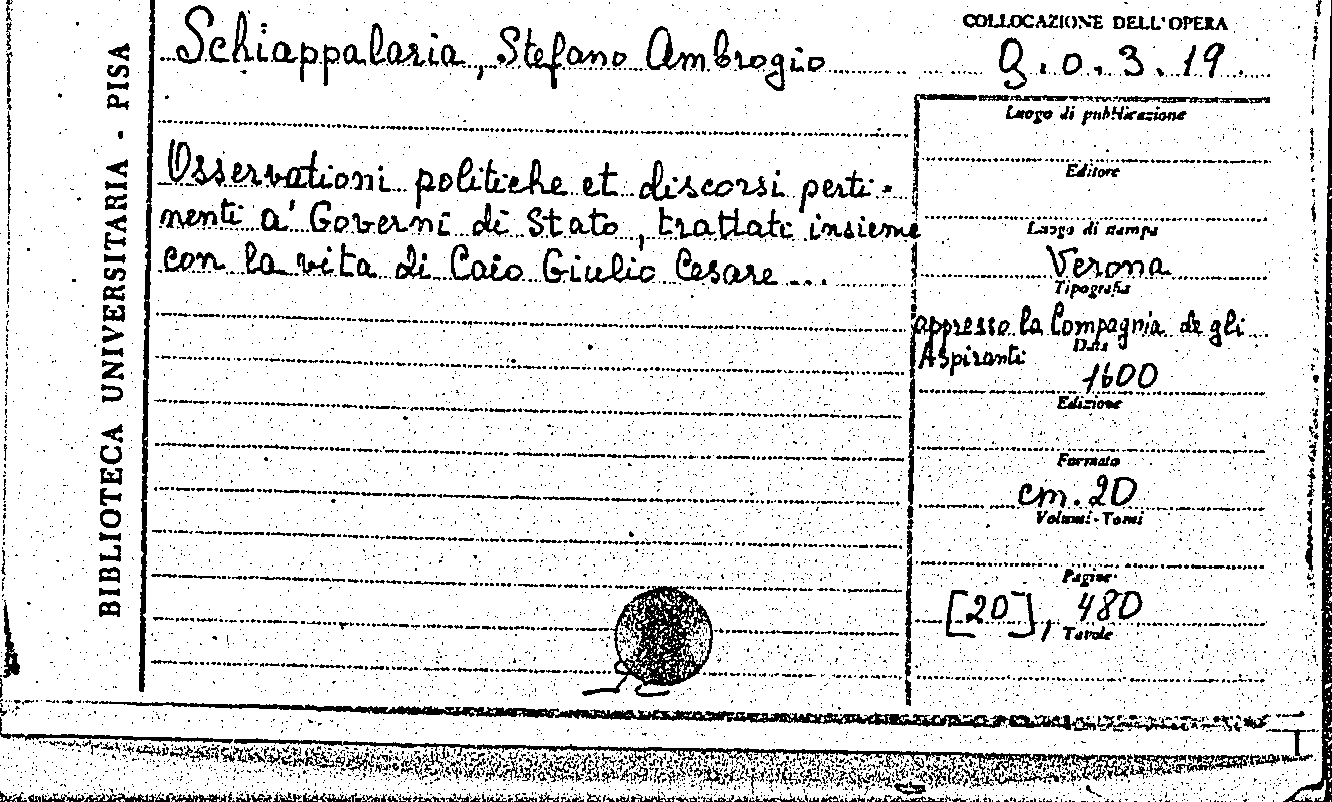 BIBLIOTECA UNIVERSITARIA - PISA
Schiappalaria, Stefano Ambrogio
Osservationi politiche et discorsi perti-
nenti a' Governi di Stato, trattati insieme
con la vita di Caio Giulio Cesare...
COLLOCAZIONE DELL'OPERA
Q.0.3.19.
Luogo di pubblicazione
Editore
Luogo di stampa
Verona
Tipografia
appresso la Compagnia de gli
Data
Aspiranti
1600
Edizione
Formato
cm. 20
Volumi-Tomi
Pagine
[20], 480
Tavole